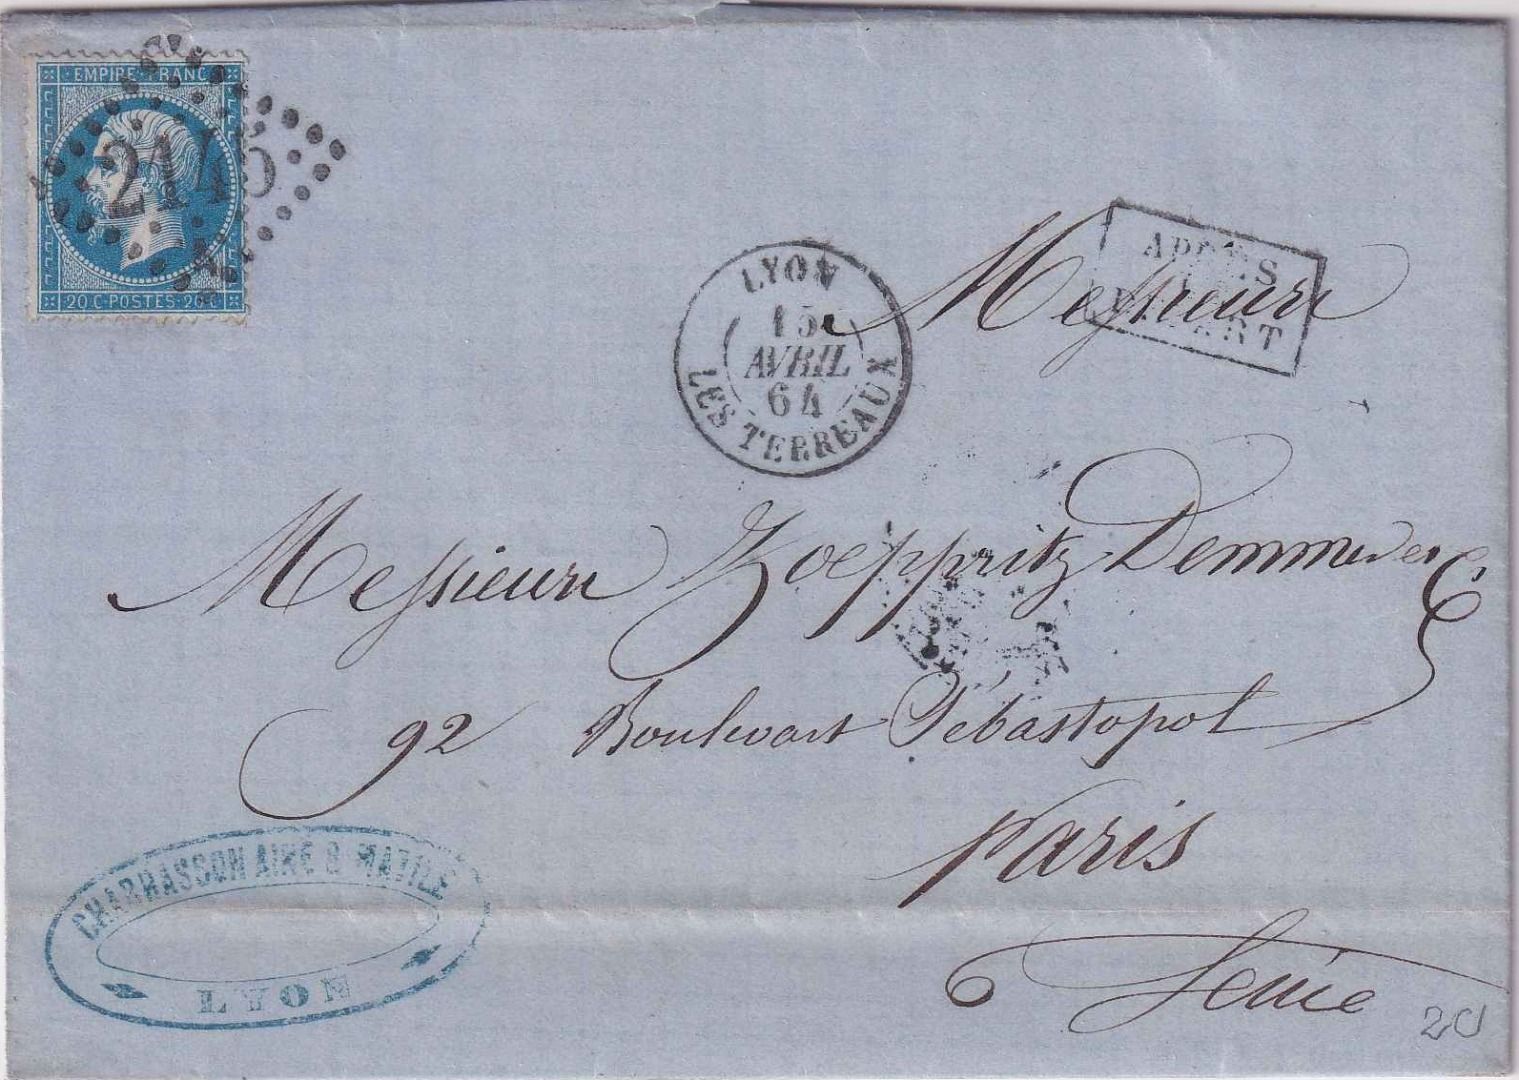 EMPIRE FRANC
2145
20 C POSTES 20 C
LYON
15
AVRIL
64
LES TERREAUX
APRÈS
LE
DÉPART
Messieurs
Messieurs Zoeppritz Demmer & C
92 Boulevart Sébastopol
Paris
Seine
CHARRASSON AINÉ & MATILE
LYON
20